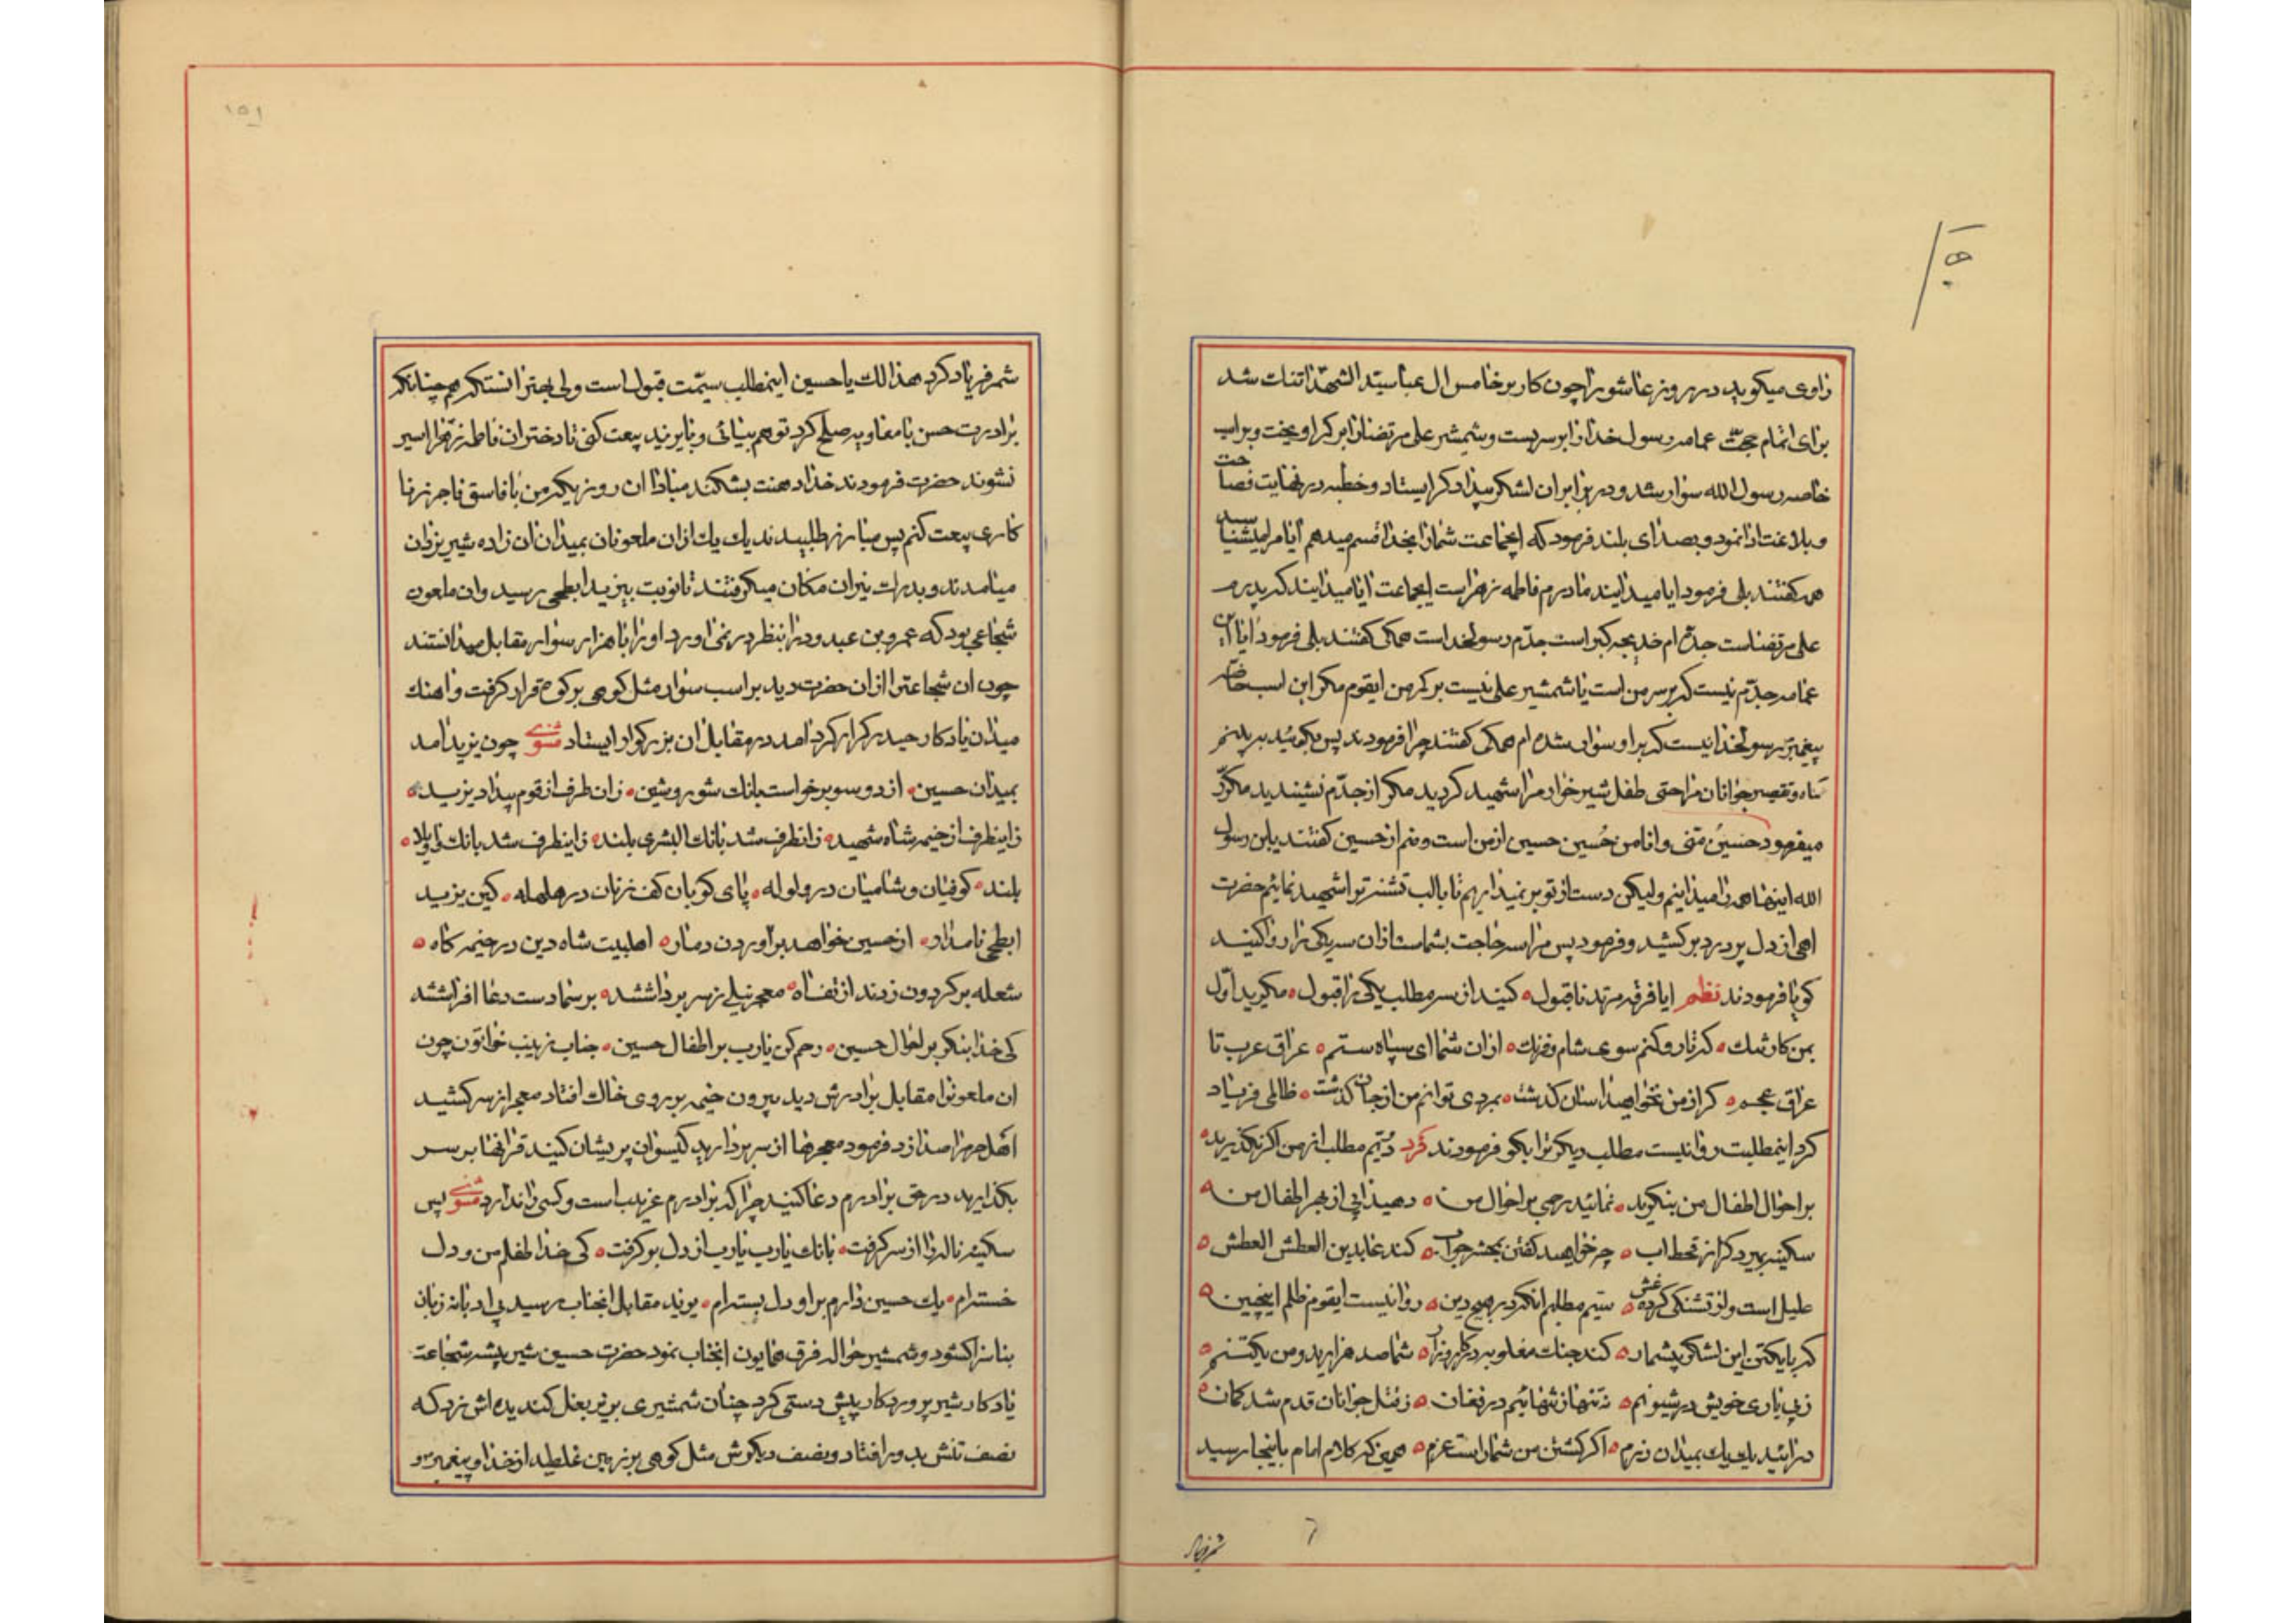 راوی میکوید در روز عاشورا چون کار بر خامس ال عبا سید الشهدا تنک شد
برای اتمام حجت عمامه رسول خدا را بر سر بست و شمشیر علی مرتضی را بر کمر اویخت و بر اسب
خاصه رسول الله سوار شد و در برابر ان لشکر بیداد کر ایستاد و خطبه در نهایت فصاحت
و بلاغت ادا نمود و بصدای بلند فرمود که ایجماعت شما را بخدا قسم میدهم ایا مرا میشناسید
همه کفتند بلی فرمود ایا میدانید مادرم فاطمه زهرا است ایجماعت ایا میدانید که پدرم
علی مرتضاست جده ام خدیجه کبرا است جدم رسولخداست همکی کفتند بلی فرمود ایا این
عمامه جدم نیست که بر سر من است یا شمشیر علی نیست بر کمر من ایقوم مکر این اسب خاصه
پیغمبر رسولخدا نیست که بر او سوار شده ام همکی کفتند چرا فرمودند پس بکوئید بچه
کناه و تقصیر جوانان مرا حتی طفل شیر خوار مرا شهید کردید مکر از جدم نشنیدید مکرر
میفرمود حسین منی و انا من حسین حسین از من است و منم از حسین کفتند یابن رسول
الله اینها همه را میدانیم ولیکن دست از تو بر نمیداریم تا با لب تشنه تو را شهید نمائیم حضرت
اهی از دل پر درد بر کشید و فرمود پس مرا سه حاجت بشماست از ان سه یکی را روا کنید
کویا فرمودند نظم ایا فرقه مرتد ناقبول کنید از سه مطلب یکی را قبول مکیرید اول
بمن کار تنک که تا رو کنم سوی شام و فرنک از ان شما ای سپاه ستم عراق عرب تا
عراق عجم کر از من نخواهید اسان کذشت بمردی توانم من از جان کذشت ظالمی فریاد
کرد اینمطلبت روا نیست مطلب دیکر ترا بکو فرمودند فرد دویم مطلب از من اکر نکذرید
بر احوال اطفال من بنکرید نمائید رحمی بر احوال من دهید ابی از بهر اطفال من
سکینه بمیرد کر از قحط اب چه خواهید کفتن بمحشر جواب کند عابدین العطش العطش
علیل است و از تشنکی کرده غش سیم مطلبم انکه در هیچ دین روا نیست ایقوم ظلم اینچنین
که با یکتن این لشکر بیشمار کند جنک مغلوبه در کارزار شما صد هزارید و من یکتنم
ز بی یاری خویش در شیونم نه تنها ز تنهائیم در فغان ز قتل جوانان قدم شد کمان
در ائید یک یک بمیدان رزم اکر کشتن من شما راست عزم همین که کلام امام باینجا رسید
شمر فریاد
شمر فریاد کرد هذا لک یا حسین اینمطلب سیمت قبول است ولی بهتر انستکه همچنانکه
برادرت حسن با معاویه صلح کرد تو هم بیائی و با یزید بیعت کنی تا دختران فاطمه زهرا اسیر
نشوند حضرت فرمودند خدا دهنت بشکند مبادا ان روزیکه من با فاسق فاجر زنا
کاری بیعت کنم پس مبارز طلبیدند یک یک از ان ملعونان بمیدان ان زاده شیر یزدان
میامدند و بدرک نیران مکان میکرفتند تا نوبت بیزید ابطحی رسید و ان ملعون
شجاعی بود که عمرو بن عبدود را بنظر در نمی اورد او را با هزار سوار مقابل میدانستند
چون ان شجاعترا از ان حضرت دید بر اسب سوار مثل کوهی بر کوه قرار کرفت و اهنک
میدان یادکار حیدر کرار کرد امد در مقابل ان بزرکوار ایستاد مثنوی چون یزید امد
بمیدان حسین از دو سو برخواست بانک شور و شین زان طرف از قوم بیداد یزید
زاینطرف از خیمه شاه شهید زانطرف شد بانک البشری بلند زاینطرف شد بانک واویلا
بلند کوفیان و شامیان در ولوله پای کوبان کف زنان در هلهله کین یزید
ابطحی نامدار از حسین خواهد براوردن دمار اهلبیت شاه دین در خیمه کاه
شعله بر کردون زدند از تف اه معجر نیلی ز سر برداشتند بر سما دست دعا افراشتند
کی خدا بنکر بر احوال حسین رحم کن یارب بر اطفال حسین جناب زینب خواتون چون
ان ملعونرا مقابل برادرش دید بیرون خیمه بر روی خاک افتاد معجر از سر کشید
اهل حرم را صدا زد فرمود معجرها از سر بردارید کیسوان پریشان کنید قرانها بر سر
بکذارید در حق برادرم دعا کنید چرا که برادرم غریب است و کسی را ندارد مثنوی پس
سکینه ناله را از سر کرفت بانک یارب یارب از دل بر کرفت کی خدا طفلم من و دل
خسته ام یک حسین دارم بر او دل بسته ام یزید مقابل انجناب رسید بی ادبانه زبان
بناسزا کشود و شمشیر حواله فرق همایون انجناب نمود حضرت حسین شیر بیشه شجاعت
یادکار شیر پروردکار پیش دستی کرد چنان شمشیری بر زیر بغل کندیده اش زد که
نصف تنش بدور افتاد و نصف دیکرش مثل کوهی بر زمین غلطید از خدا و پیغمبر